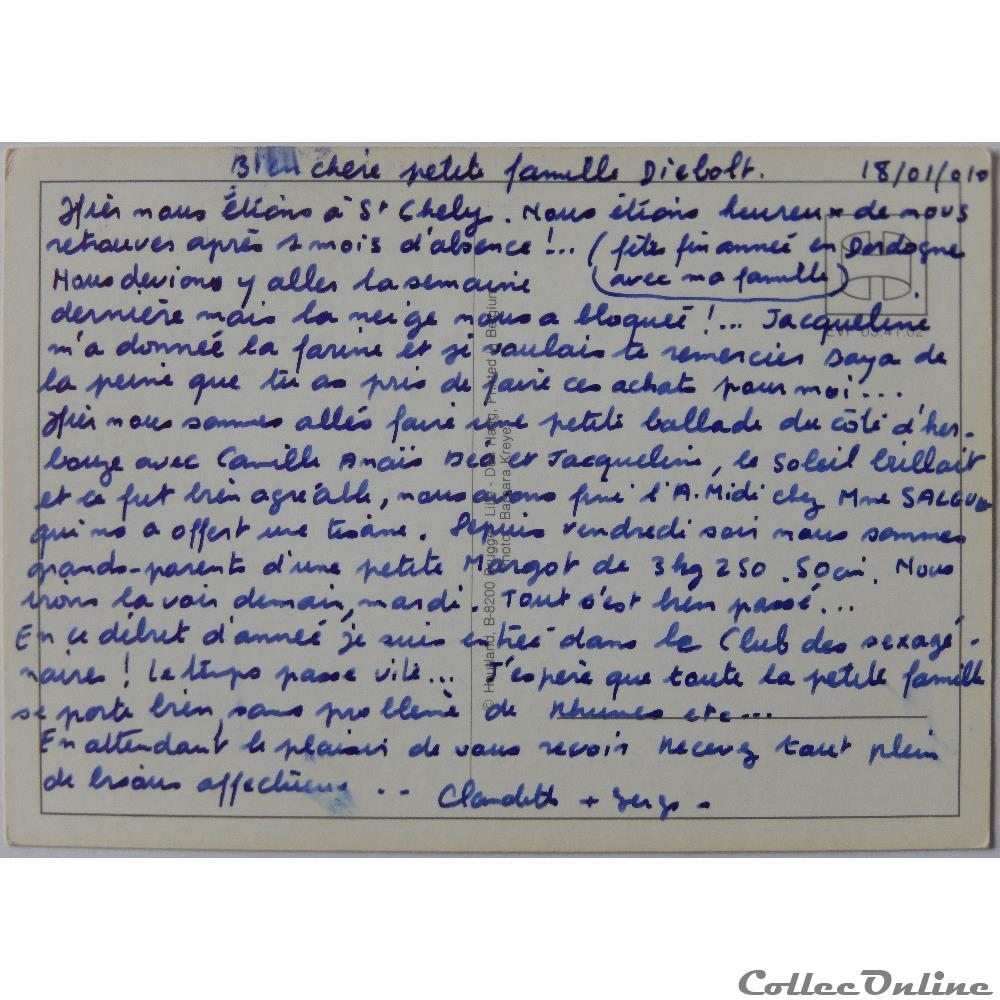 Bien chère petite famille Diebolt. 18/01/010
Hier nous étions à St Chely. Nous étions heureux de nous
retrouver après 1 mois d'absence !... (fête fin année en Dordogne
Nous devions y aller la semaine avec ma famille).
dernière mais la neige nous a bloqué !... Jacqueline
m'a donné la farine et je voulais te remercier Daya de
la peine que tu as pris de faire ces achats pour moi...
Hier nous sommes allés faire une petite ballade du côté d'her-
bouze avec Camille Anaïs Béa et Jacqueline, le soleil brillait
et ce fut bien agréable, nous avons fini l'A.Midi chez Mme
qui ns a offert une tisane. Depuis vendredi soir nous sommes
grands-parents d'une petite Margot de 3kg 250. 50cm. Nous
irons la voir demain, mardi. Tout s'est bien passé...
En ce début d'année je suis entrée dans le Club des sexagé-
naires ! Le temps passe vite... J'espère que toute la petite famille
se porte bien, sans problème de Rhumes etc...
En attendant le plaisir de vous revoir Recevez tout plein
de bisous affectueux .. Claudette + Serge -
Printed in Belgium
Photo: Barbara Kreye
CollecOnline